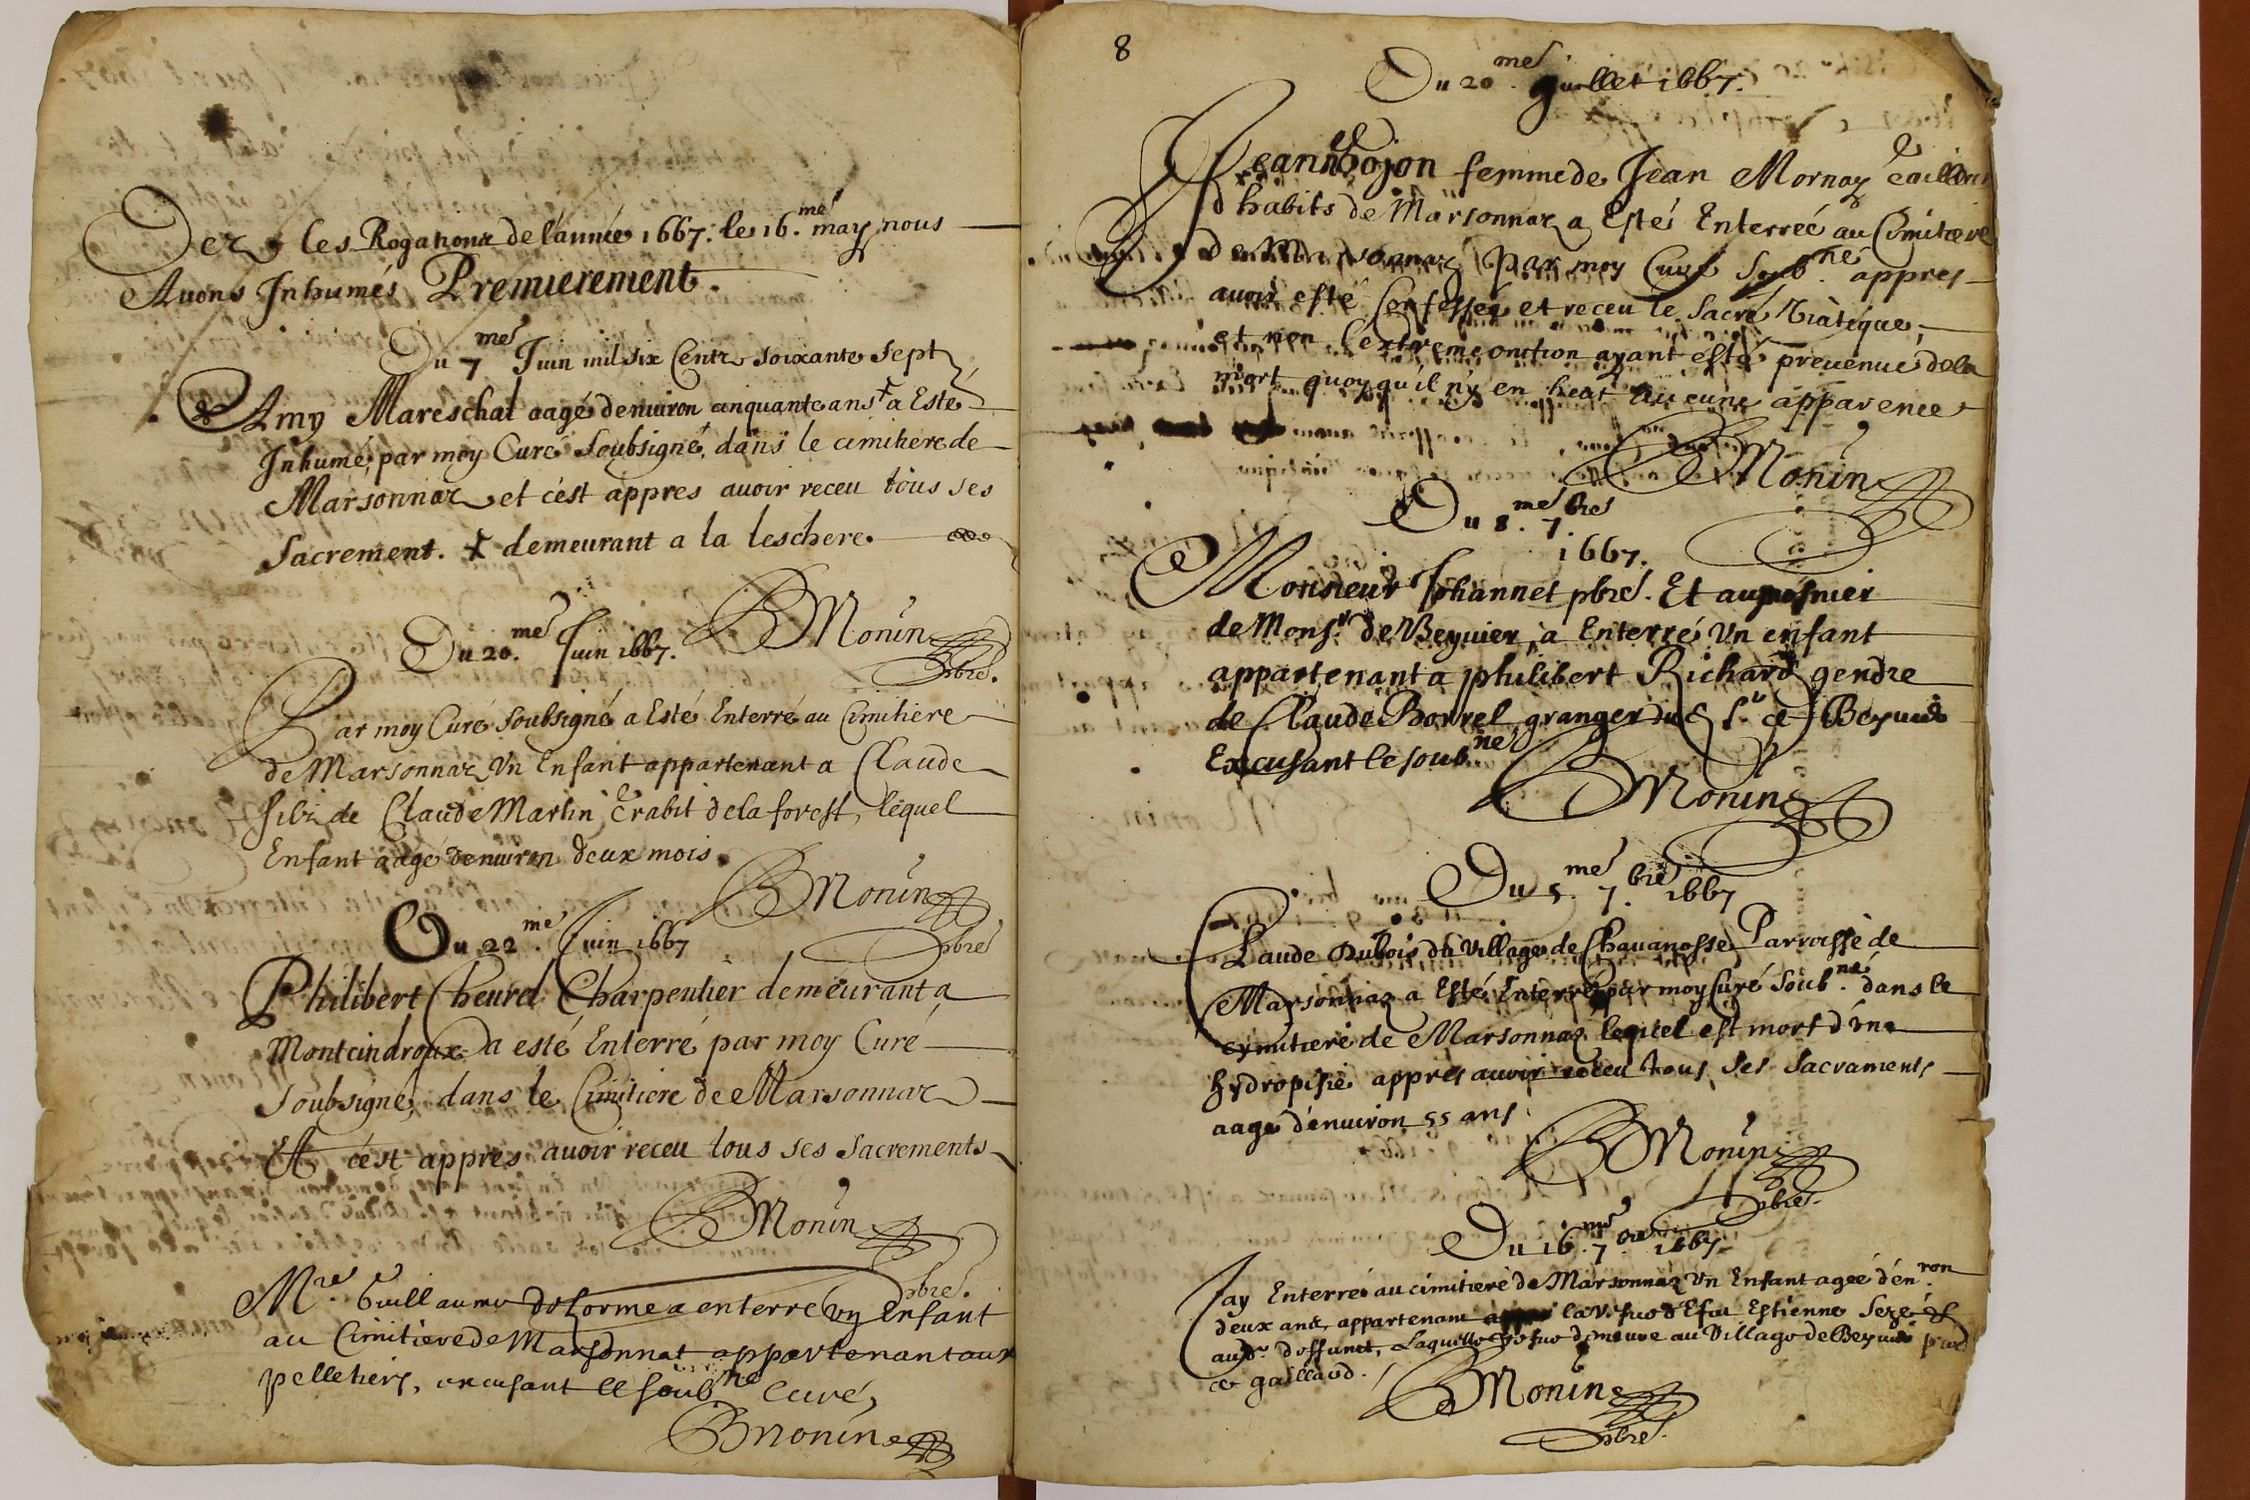 Dez les Rogations de l'année 1667. le 16.me may nous
Auons Inhumés Premierement.
Du 7me Juin mil six Centz soixante sept
Amy Mareschal aagé denuiron cinquante ans + a Esté
Inhumé, par moy Curé Soubsigné, dans le cimitiere de
Marsonnaz et c'est appres auoir receu tous ses
Sacrement. + demeurant a la leschere.
BMonin
pbre.
Du 20.me Juin 1667.
Par moy Curé Soubsigné a Esté Enterré au Cimitiere
de Marsonnaz Vn Enfant appartenant a Claude
filz de Claude Martin Crabit de la forest, lequel
Enfant aagé denuiron deux mois.
BMonin
pbre
Du 22me. Juin 1667
Philibert Cheurel Charpentier demeurant a
Montcindroux a esté Enterré par moy Curé
Soubsigné, dans le Cimitiere de Marsonnaz
Et c'est appres auoir receu tous ses sacrements
BMonin
pbre.
Mre. Guillaume Delorme a enterre vn Enfant
au Cimitiere de Marsonnat appartenant aux
pelletiers, excusant le soubne curé,
BMonin
8
Du 20me. Juillet 1667.
Jeanne Bojon femme de Jean Mornay tailleur
d'habits de Marsonnaz a Esté Enterreé au Cimitiere
de Marsonnaz Par moy Curé Soubne. appres
auoir esté Confesseé et receu le Sacré Viatique,
et non l'extreme onction ayant esté preuenue de la
mort quoy qu'il n'y en heut aucune apparence
BMonin
Du 8.me 7.bre
1667.
Monsieur Johannet pbre. Et aumosnier
de Monsr. de Beyuier, a Enterré Vn enfant
appartenant a philibert Richard gendre
de Claude Borrel granger du Sr de Beyuié
Excusant le soubné.
BMonin
Du 5me. 7.bre 1667
Claude Dubois du Village de Chauanosse Parroisse de
Marsonnaz a Esté Enterré par moy Curé Soubné. dans le
cymitiere de Marsonnaz lequel est mort d'une
hydropisie appres auoir receu tous ses sacraments
aagé d'enuiron 55 ans
BMonin
pbre.
Du 16.me 7.bre 1667.
J'ay Enterré au cimitiere de Marsonnaz Vn Enfant ageé d'enron.
deux ans, appartenant la Vefue d'Efeu Estienne Sezé &
audr. deffunct, Laquelle Vefue demeure au Village de Beyuié
gaillard.
BMonin
pbre.